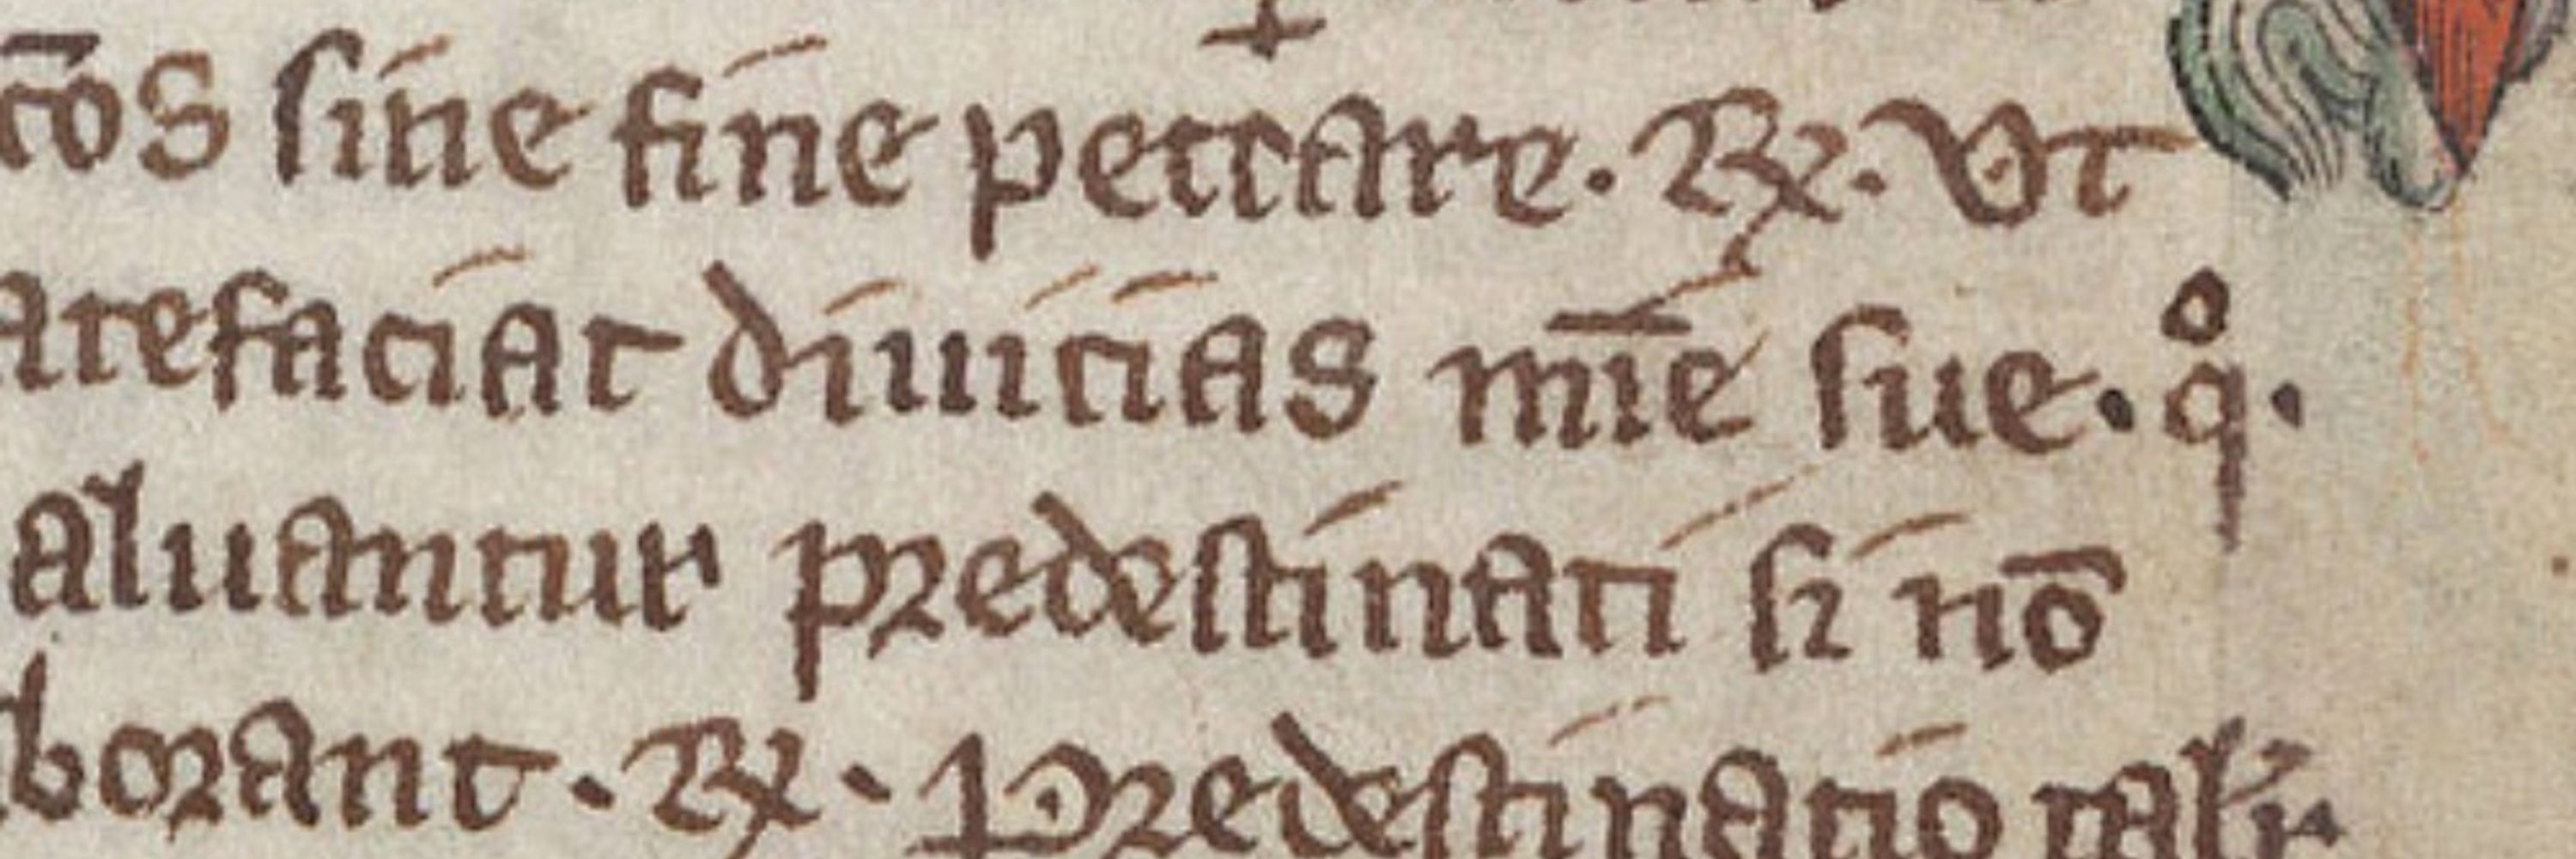 c̄os sine fine peccare. ℟. Vt
atefaciat diuicias mīe sue. qͦ.
aluantur predestinati si nō
borant. ℟. Predestinatio talit̾